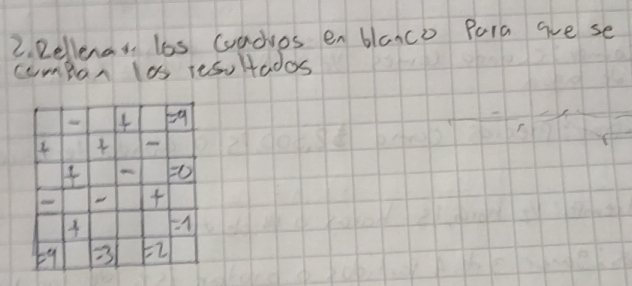 2. Rellenar los cuadros en blanco Para que se
cumplan los resultados
- + =9
+ + -
+ - =0
- - +
+ =1
=9 =3 =2